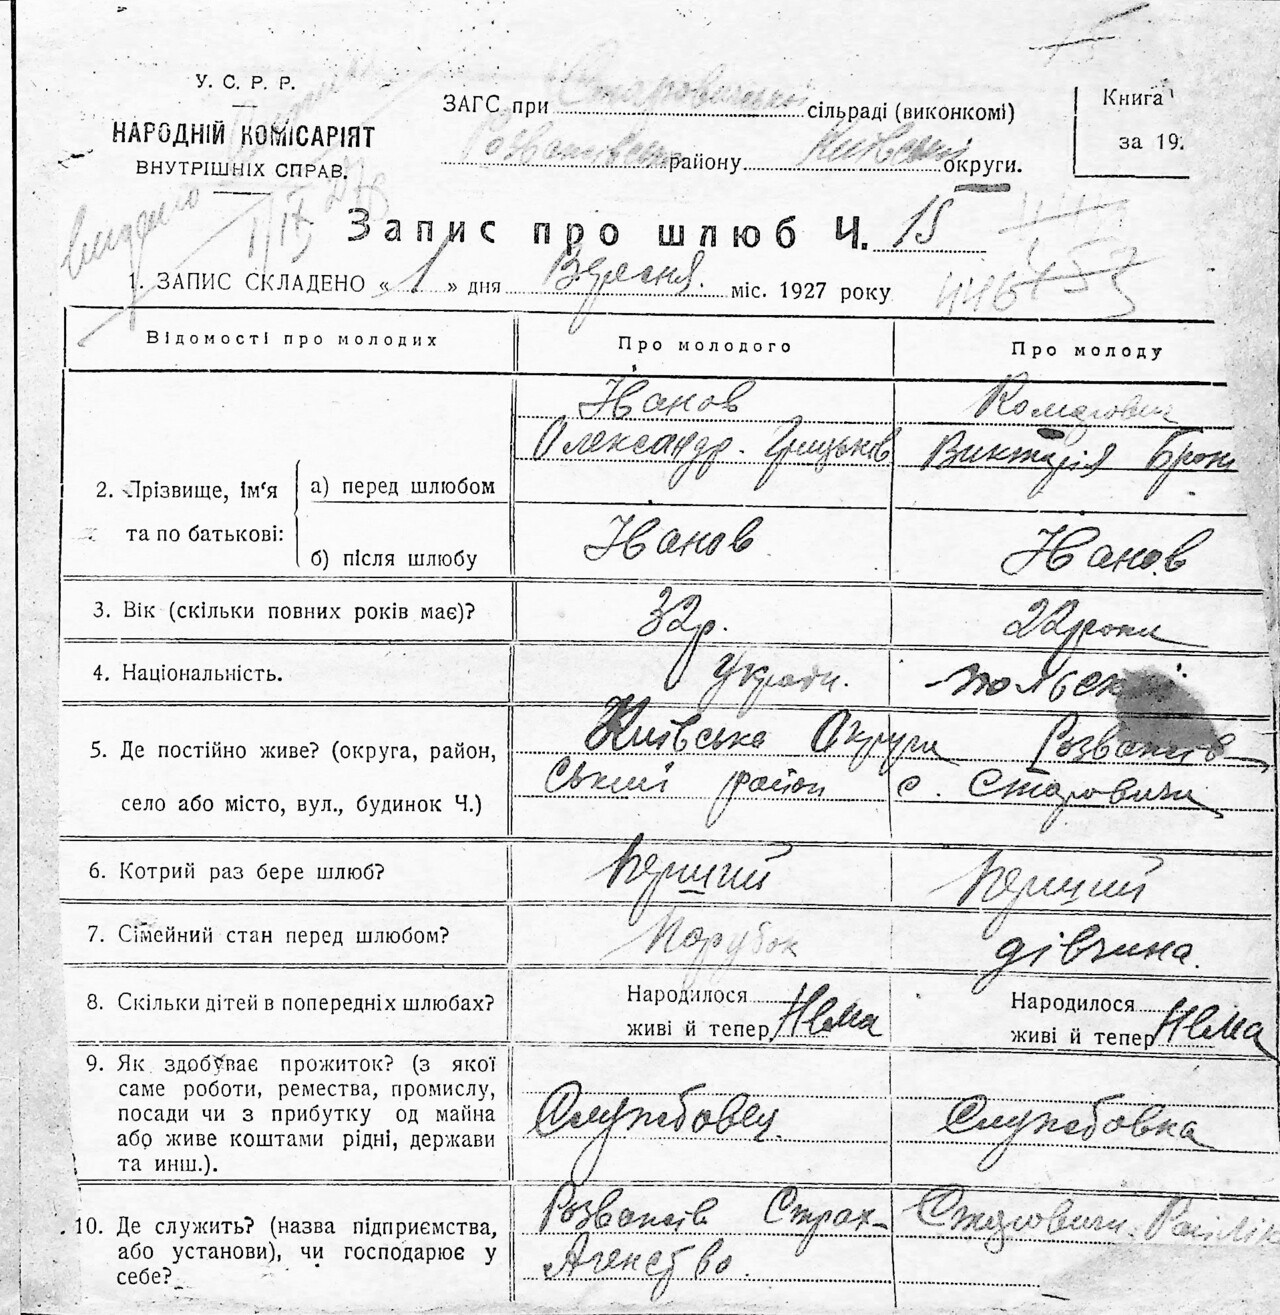 У. С. Р. Р.
НАРОДНІЙ КОМІСАРІЯТ
ВНУТРІШНІХ СПРАВ.
ЗАГС при Старовицькій сільраді (виконкомі)
району Київської округи.
Книга
за 19
видано
1/IX 27
Запис про шлюб Ч. 15
446
1. ЗАПИС СКЛАДЕНО « 1 » дня Вересня. міс. 1927 року
Відомості про молодих
Про молодого
Про молоду
2. Прізвище, ім'я та по батькові:
а) перед шлюбом
Іванов
Олександр. Грицьків
Виктація Брон
б) після шлюбу
Іванов
Іванов
3. Вік (скільки повних років має)?
32р.
22 роки
4. Національність.
україн.
польск
5. Де постійно живе? (округа, район,
село або місто, вул., будинок Ч.)
Київська Округа Розважів-
ський район с. Старовичи
6. Котрий раз бере шлюб?
Перший
Перший
7. Сімейний стан перед шлюбом?
Парубок
дівчина.
8. Скільки дітей в попередніх шлюбах?
Народилося
живі й тепер Нема
Народилося
живі й тепер Нема
9. Як здобуває прожиток? (з якої
саме роботи, ремества, промислу,
посади чи з прибутку од майна
або живе коштами рідні, держави
та инш.).
Службовец.
Службовка
10. Де служить? (назва підприємства,
або установи), чи господарює у
себе?
Розважів Страх-
Агенство.
Старовичи.